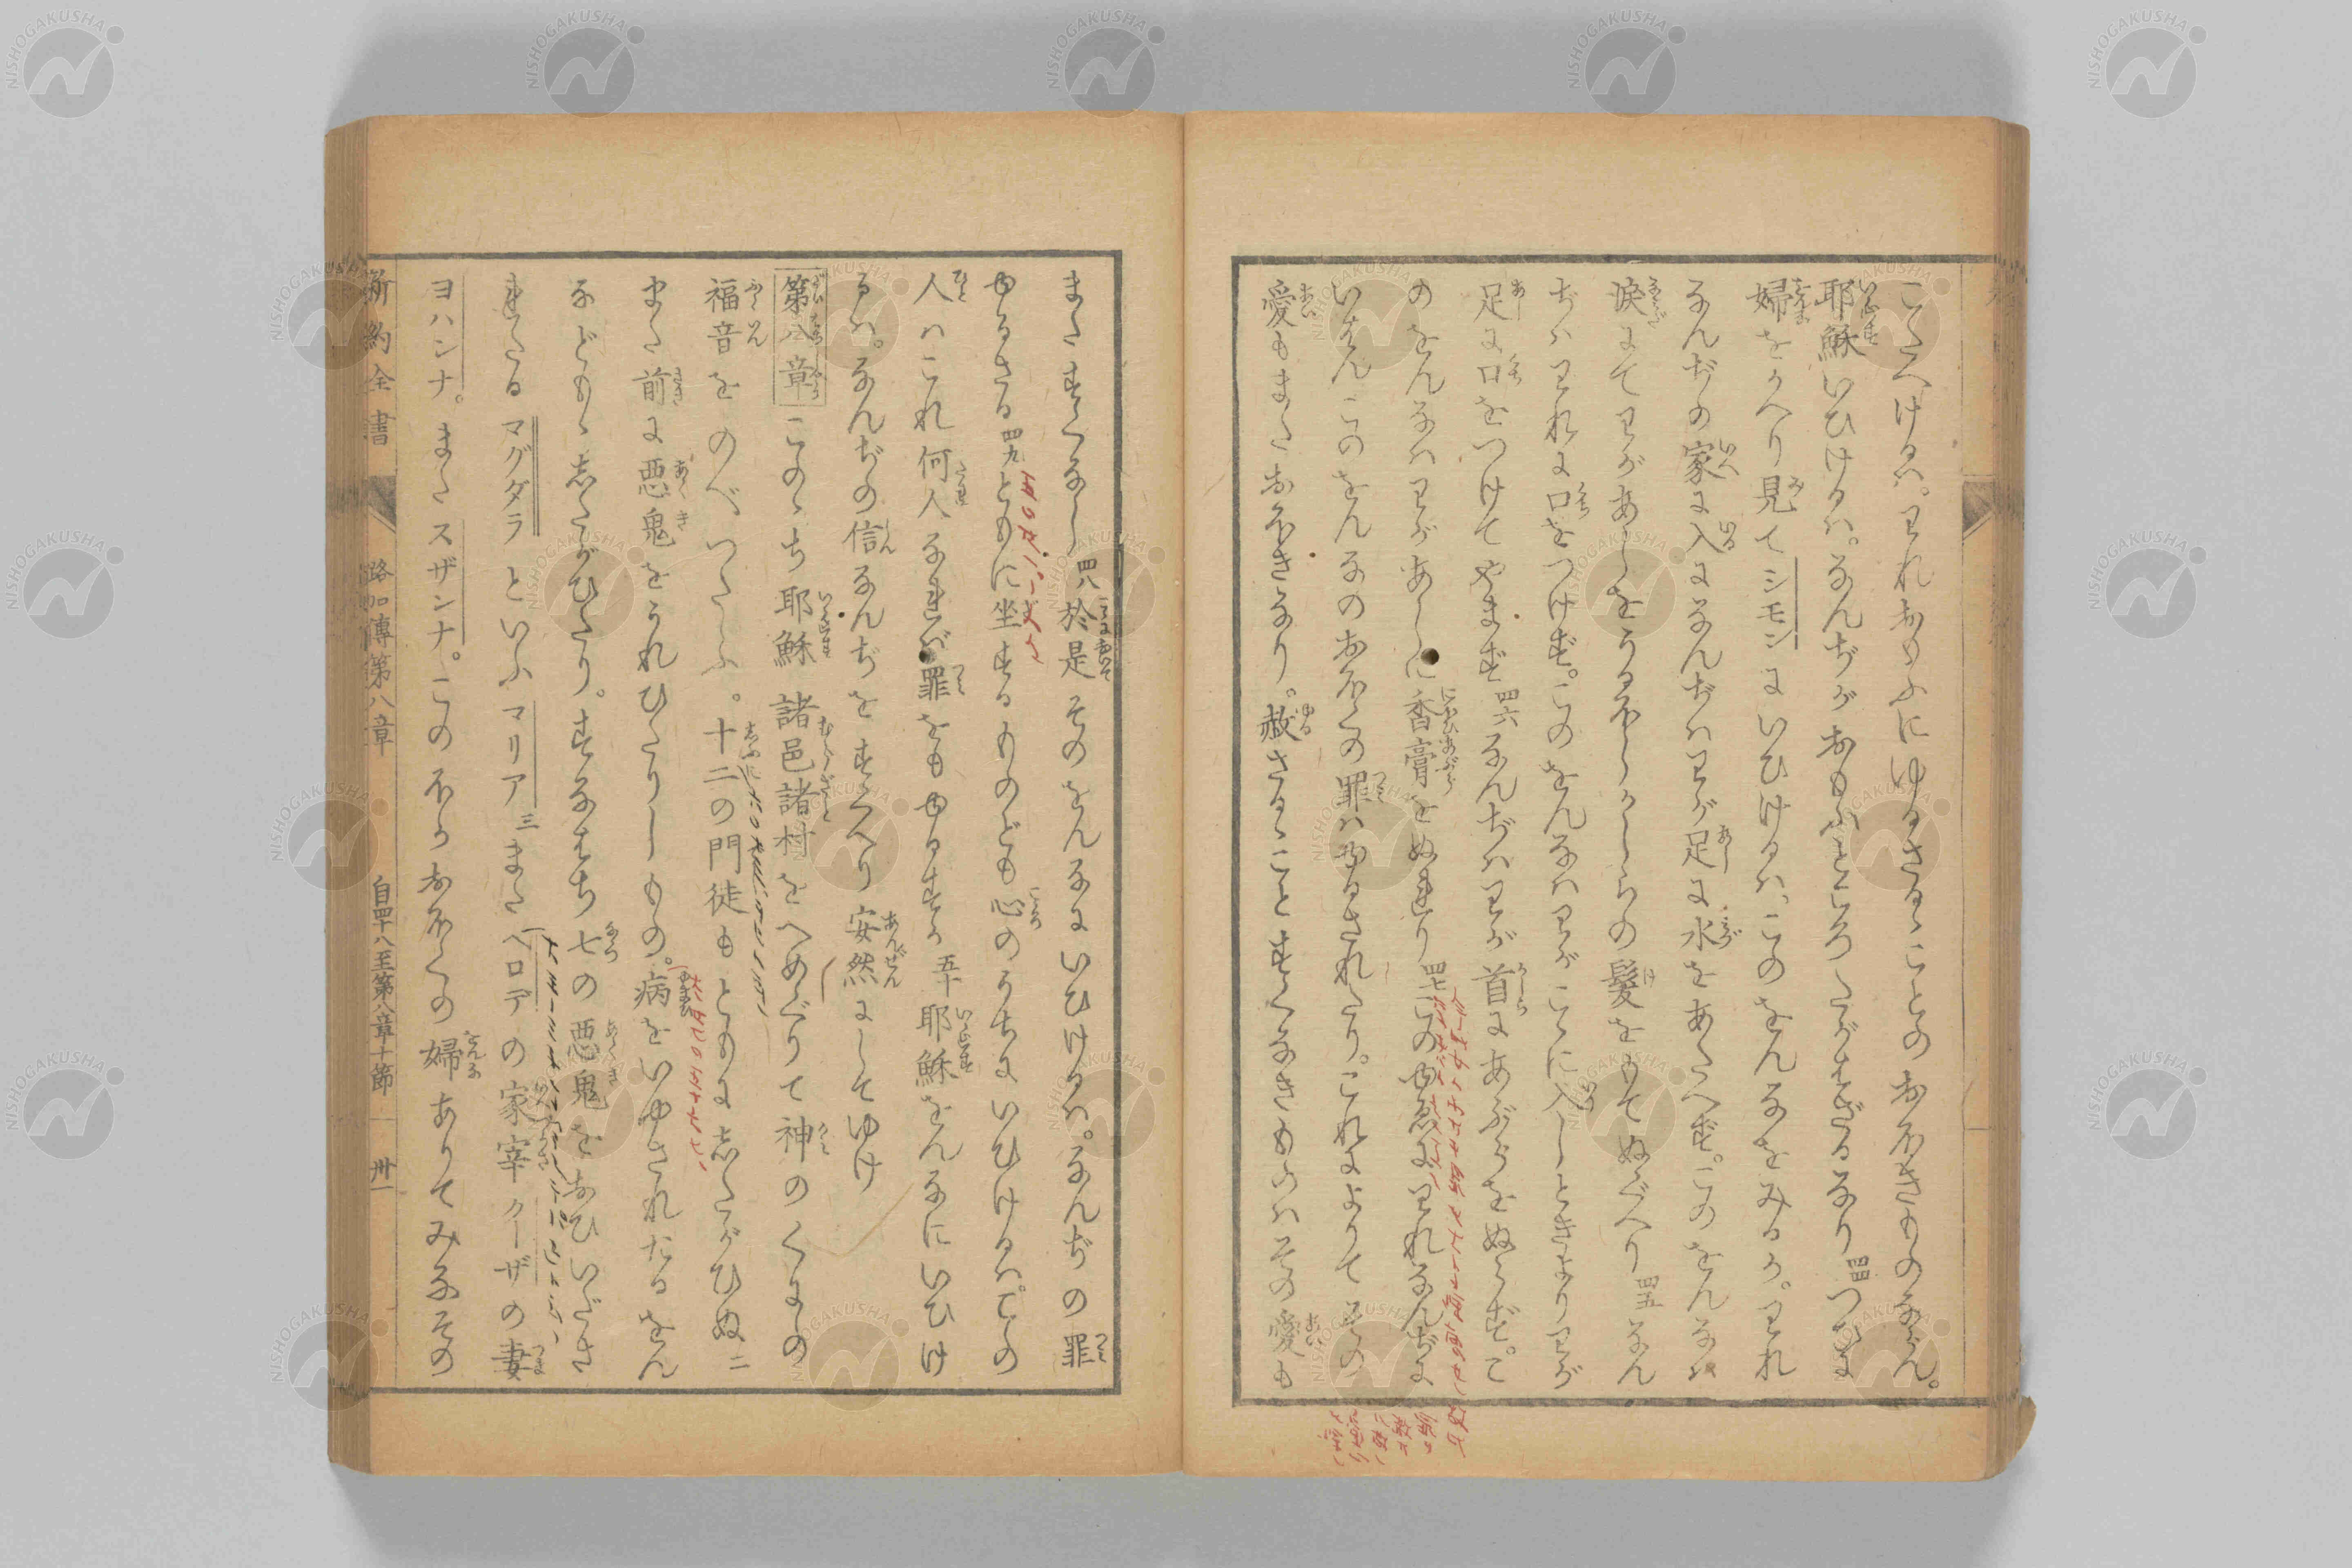 こたへけるハ。われおもふにゆるさるゝことのおほきものならん。
耶穌いひけるハ。なんぢがおもふところたがはざるなり 四四 つひに
婦をかへり見てシモンにいひけるハ。このをんなをみるか。われ
なんぢの家に入になんぢハわが足に水をあたへず。このをんなハ
淚にてわがあしをうるほしかしらの髮をもてぬぐへり 四五 なん
ぢハわれに口をつけず。このをんなハわがこゝに入しときよりわが
足に口をつけてやまず 四六 なんぢハわが首にあぶらをぬらず。こ
のをんなハわがあしに香膏をぬれり 四七 このゆゑにわれなんぢに
いはん このをんなのおほくの罪ハゆるされたり。これによりてその
愛もまたおほきなり。赦さるゝことすくなきものハその愛も
またすくなし 四八 於是そのをんなにいひけるハ。なんぢの罪
ゆるさる 四九 ともに坐するものども心のうちにいひけるハ。この
人ハこれ何人なれバ罪をもゆるすか 五十 耶穌をんなにいひけ
るハ。なんぢの信なんぢをすくへり 安然にしてゆけ
第八章 このゝち耶穌 諸邑諸村をへめぐりて神のくにの
福音をのべつたふ。十二の門徒もともにしたがひぬ 二
また前に惡鬼をうれひたりしもの。病をいやされたるをん
などもゝしたがひたり。すなはち七の惡鬼をおひいださ
れたるマグダラといふマリア 三 またヘロデの家宰クーザの妻
ヨハンナ。またスザンナ。このほかおほくの婦ありてみなその
新約全書 路加傳第八章 自四十八至第八章十節 卅一